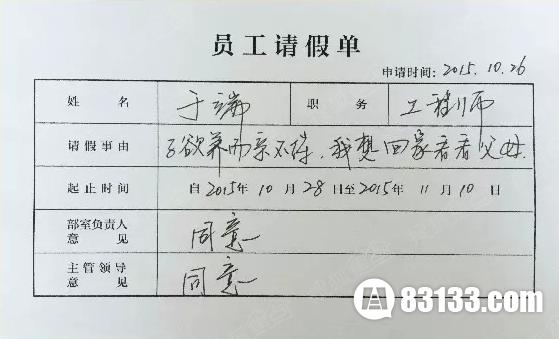 员工请假单
申请时间：2015.10.26
姓名 于端 职务 工程师
请假事由 子欲养而亲不待，我想回家看看父母.
起止时间 自2015年10月28日至2015年11月10日
部室负责人意见 同意
主管领导意见 同意
83133.com